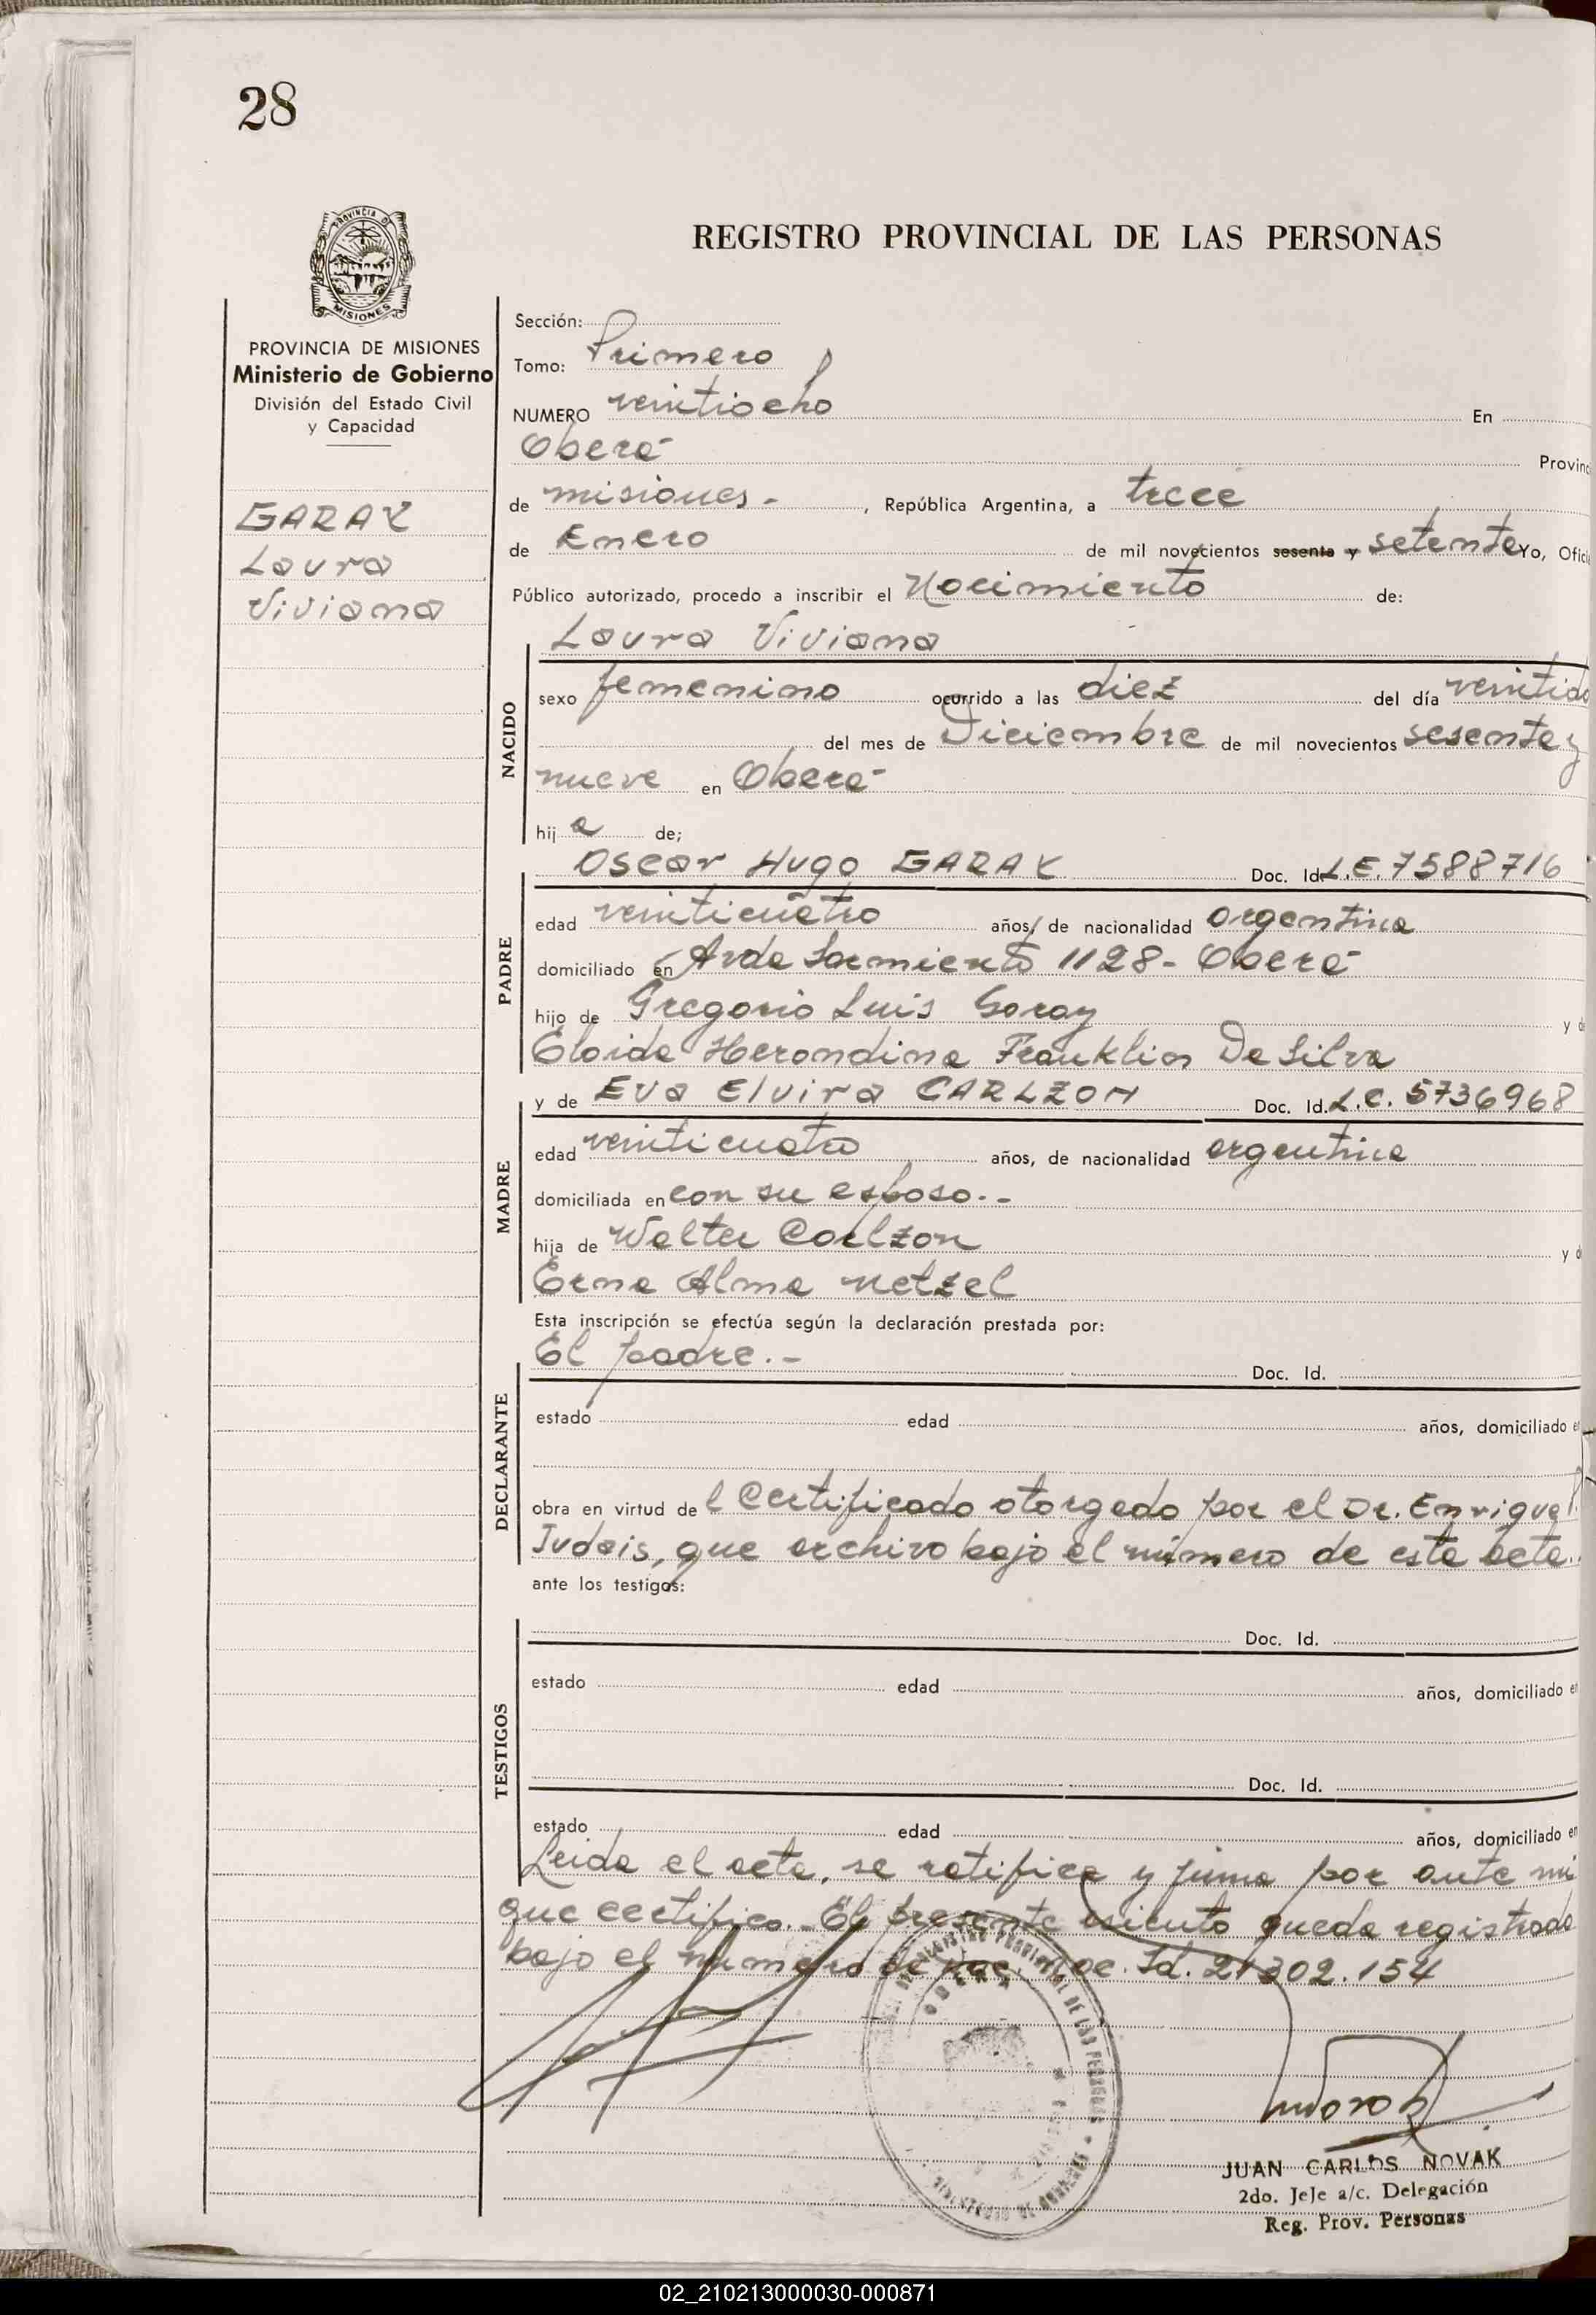 28
REGISTRO PROVINCIAL DE LAS PERSONAS
PROVINCIA DE MISIONES
Ministerio de Gobierno
División del Estado Civil
y Capacidad
GARAY
Laura
Viviana
Sección:
Tomo: Primero
NUMERO veintiocho En
Oberá Provinc
de misiones.- , República Argentina, a trece
de Enero de mil novecientos sesenta y setenta Yo, Ofici
Público autorizado, procedo a inscribir el Nacimiento de:
Laura Viviana
NACIDO
sexo femenino ocurrido a las diez del día veintido
del mes de Diciembre de mil novecientos sesenta y
nueve en Oberá
hij a de;
PADRE
Oscar Hugo GARAY Doc. Id. L.E. 7588716
edad veinticuatro años, de nacionalidad argentina
domiciliado en Avda Sarmiento 1128- Oberá
hijo de Gregorio Luis Garay y d
Eloida Herondina Franklin Da Silva
MADRE
y de Eva Elvira CARLZON Doc. Id. L.C. 5736968
edad veinticuatro años, de nacionalidad argentina
domiciliada en con su esposo.-
hija de Walter Carlzon y d
Erna Alma Netzel
Esta inscripción se efectúa según la declaración prestada por:
DECLARANTE
El padre.- Doc. Id.
estado edad años, domiciliado en
obra en virtud de l Certificado otorgado por el Dr. Enrique
Judais, que archivo bajo el número de esta acta.
ante los testigos:
TESTIGOS
Doc. Id.
estado edad años, domiciliado en
Doc. Id.
estado edad años, domiciliado en
Leida el acta, se ratifica y firma por ante mi
que certifico.- El presente asiento queda registrado
bajo el numero de Doc. Id. 21302.154
JUAN CARLOS NOVAK
2do. JeJe a/c. Delegación
Reg. Prov. Personas
02_210213000030-000871